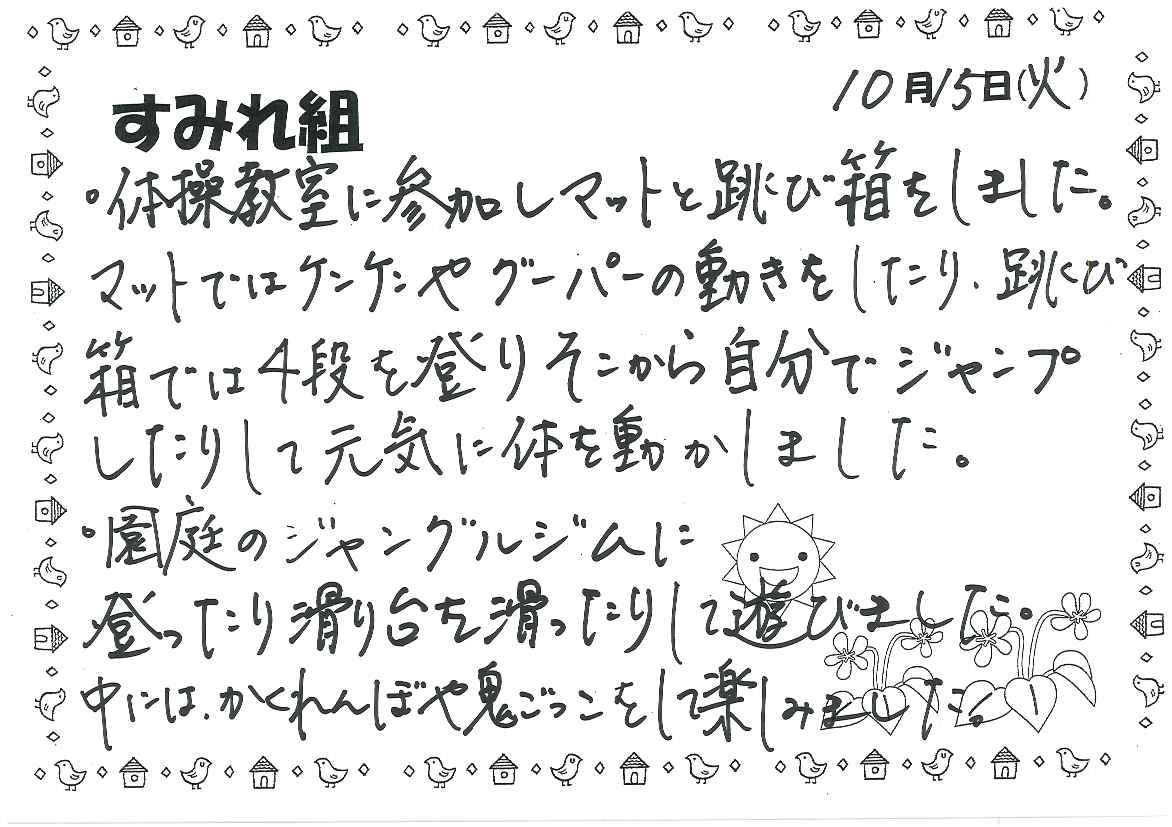 10月15日(火)
すみれ組
・体操教室に参加しマットと跳び箱をしました。
マットではケンケンやグーパーの動きをしたり、跳び
箱では4段を登りそこから自分でジャンプ
したりして元気に体を動かしました。
・園庭のジャングルジムに
登ったり滑り台を滑ったりして遊びました。
中には、かくれんぼや鬼ごっこをして楽しみました。